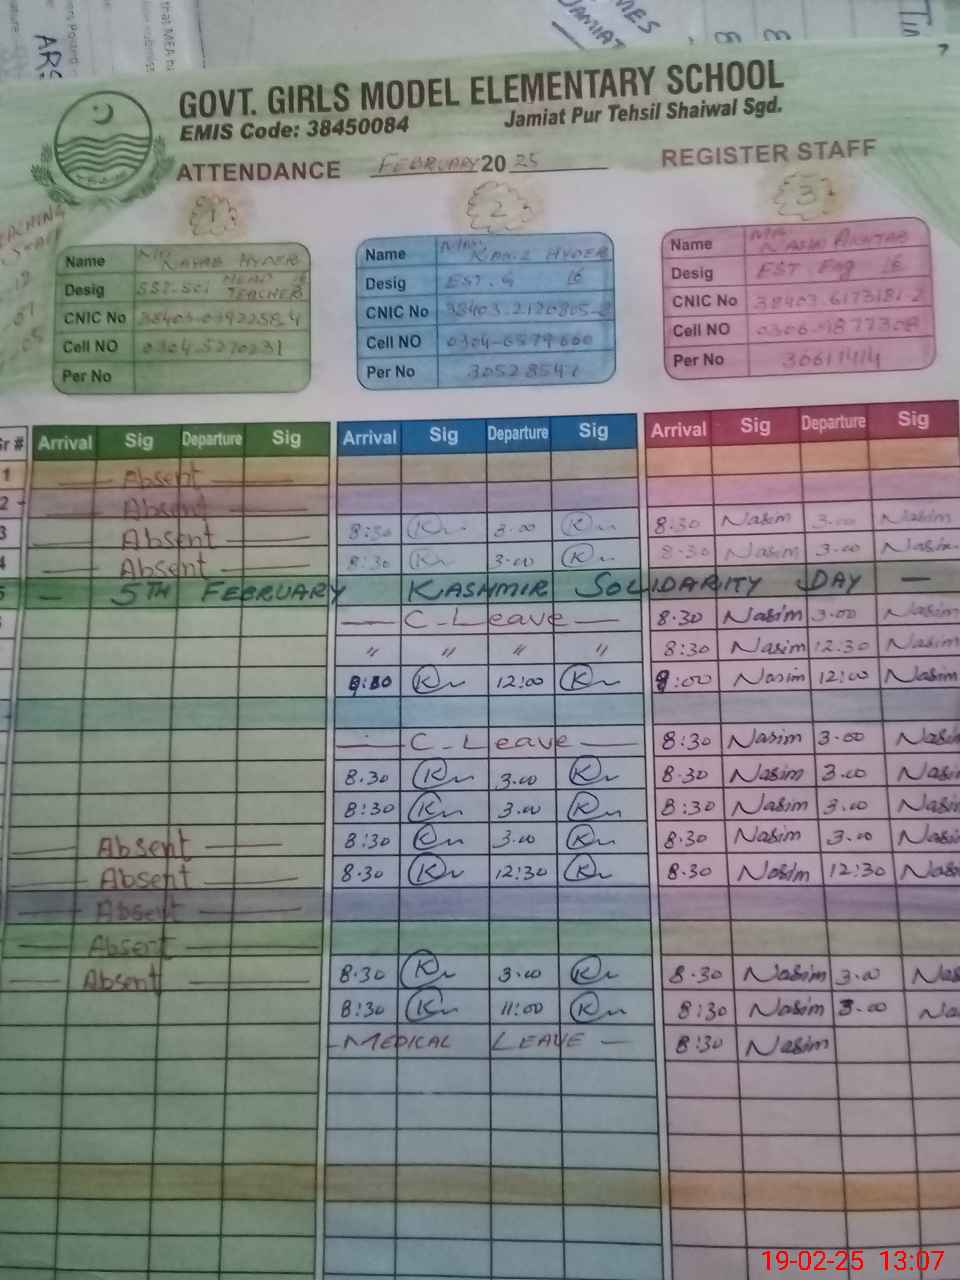 that MEA
MES
JAMIAT
GOVT. GIRLS MODEL ELEMENTARY SCHOOL
EMIS Code: 38450084 Jamiat Pur Tehsil Shaiwal Sgd.
ATTENDANCE FEBRUARY 2025 REGISTER STAFF
1 2 3
Name HYDER Name HYDER Name
Desig SST.Sci HEAD TEACHER Desig EST. G 16 Desig EST Eng 16
CNIC No CNIC No CNIC No 38403.6173181-2
Cell NO Cell NO Cell NO
Per No Per No Per No 30611414
Sr # Arrival Sig Departure Sig Arrival Sig Departure Sig Arrival Sig Departure Sig
1 Absent
2 Absent
3 Absent 8:30 K 3.00 K 8.30 Nasim 3.00 Nasim
4 Absent 8:30 K 3.00 K 8.30 Nasim 3.00 Nasim
5 — 5TH FEBRUARY KASHMIR SOLIDARITY DAY —
C-Leave 8.30 Nasim 3.00 Nasim
" " " " 8:30 Nasim 12.30 Nasim
K 12:00 K Nasim 12:00 Nasim
C-Leave 8:30 Nasim 3.00 Nasi
8.30 K 3.00 K 8.30 Nasim 3.00 Nasi
8:30 K 3.00 K 8:30 Nasim 3.00 Nasi
Absent 8:30 K 3.00 K 8.30 Nasim 3.00 Nasi
Absent 8.30 K 12:30 K 8.30 Nasim 12:30 Nasi
Absent
Absent
Absent 8.30 K 3.00 K 8.30 Nasim 3.00 Nas
8:30 K 11:00 K 8:30 Nasim 3.00 Na
MEDICAL LEAVE — 8:30 Nasim
19-02-25 13:07